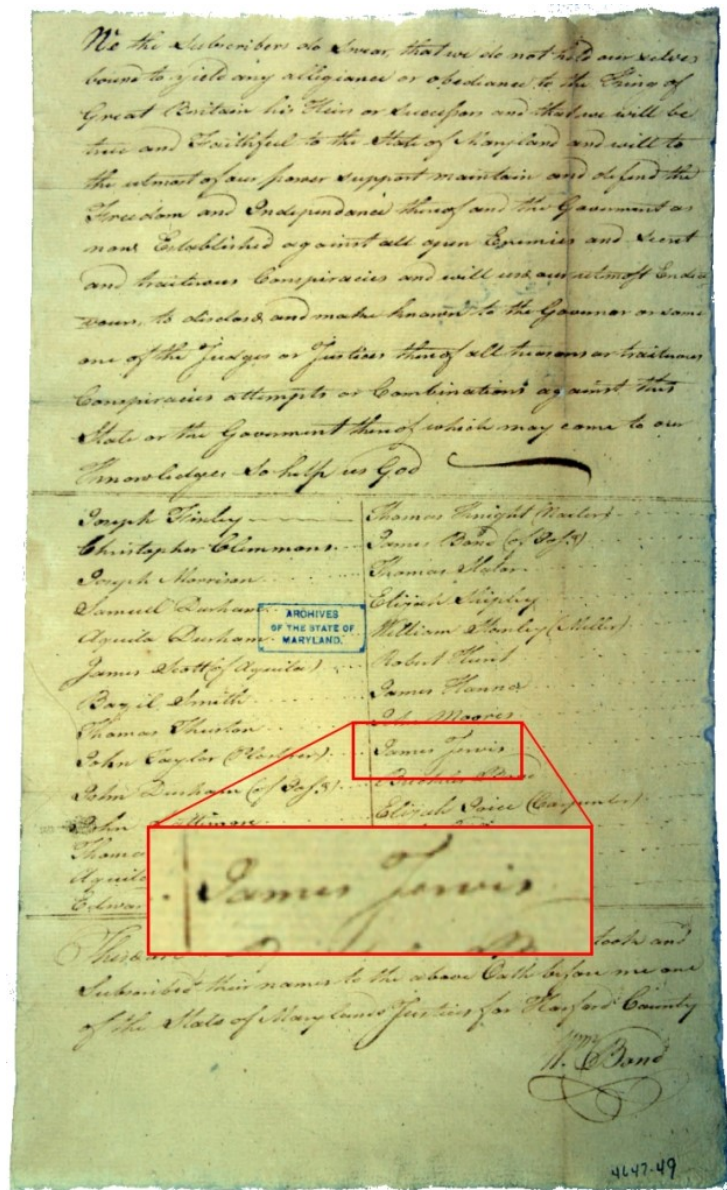 We the Subscribers do Swear, that we do not hold our selves
bound to yield any allegiance or obediance to the King of
Great Britain his Heirs or Successors and that we will be
true and Faithful to the State of Maryland and will to
the utmost of our power support maintain and defend the
Freedom and Independance thereof and the Government as
now Established against all open Enemies and secret
and traiterous Conspiracies and will use our utmost Endea
vours, to disclose and make known to the Governor or some
one of the Judges or Justices thereof all treasons or traiterous
Conspiracies attempts or Combinations against this
State or the Government thereof which may come to our
Knowledge So help us God
Joseph Finley
Christopher Clemmons
Joseph Morrison
Samuel Durham
Aquila Durham
James Scott (of Aquila)
Bazil Smith
Thomas Thurston
John Taylor
John Durham (of Jos.)
John
Thoma
Aquila
Edwar
ARCHIVES
OF THE STATE OF
MARYLAND.
Thomas Knight
James Bond (of Jos.)
Thomas
Elijah Shipley
William Stanley (Miller)
Robert Hunt
James Hanna
John Moores
James Jervis
Elijah Joice (Carpenter)
James Jervis
took and
Subscribed their names to the above Oath before me one
of the State of Maryland Justices for Harford County
Wm Bond
4647-49